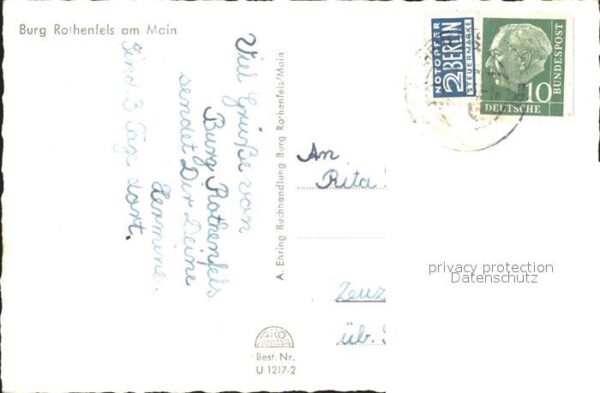 Burg Rothenfels am Main
Viel Grüße von
Burg Rothenfels
sendet Dir Deine
Hermine.
Sind 3 Tage dort.
A. Ehring Buchhandlung Burg Rothenfels/Main
NOTOPFER
2 BERLIN
STEUERMARKE
DEUTSCHE
BUNDESPOST
10
An
Rita
üb.
privacy protection
Datenschutz
Best. Nr.
U 1217-2